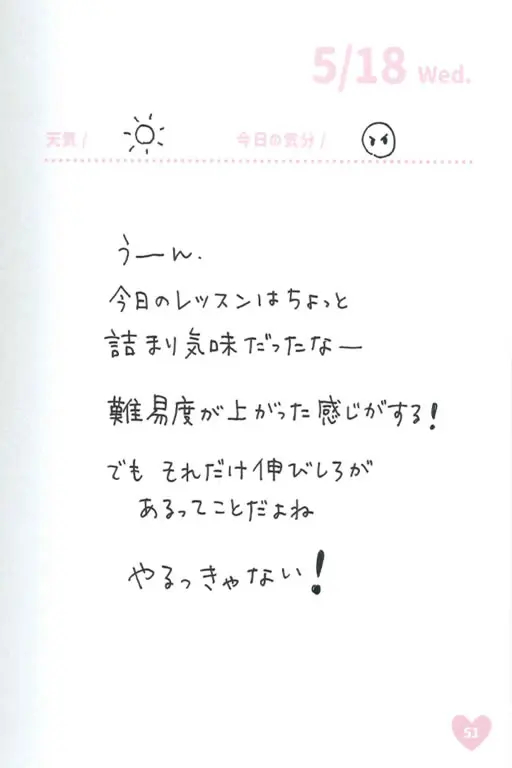 5/18 Wed.
天気 / 今日の気分 /
うーん.
今日のレッスンはちょっと
詰まり気味だったなー
難易度が上がった感じがする!
でも それだけ伸びしろが
あるってことだよね
やるっきゃない!
53